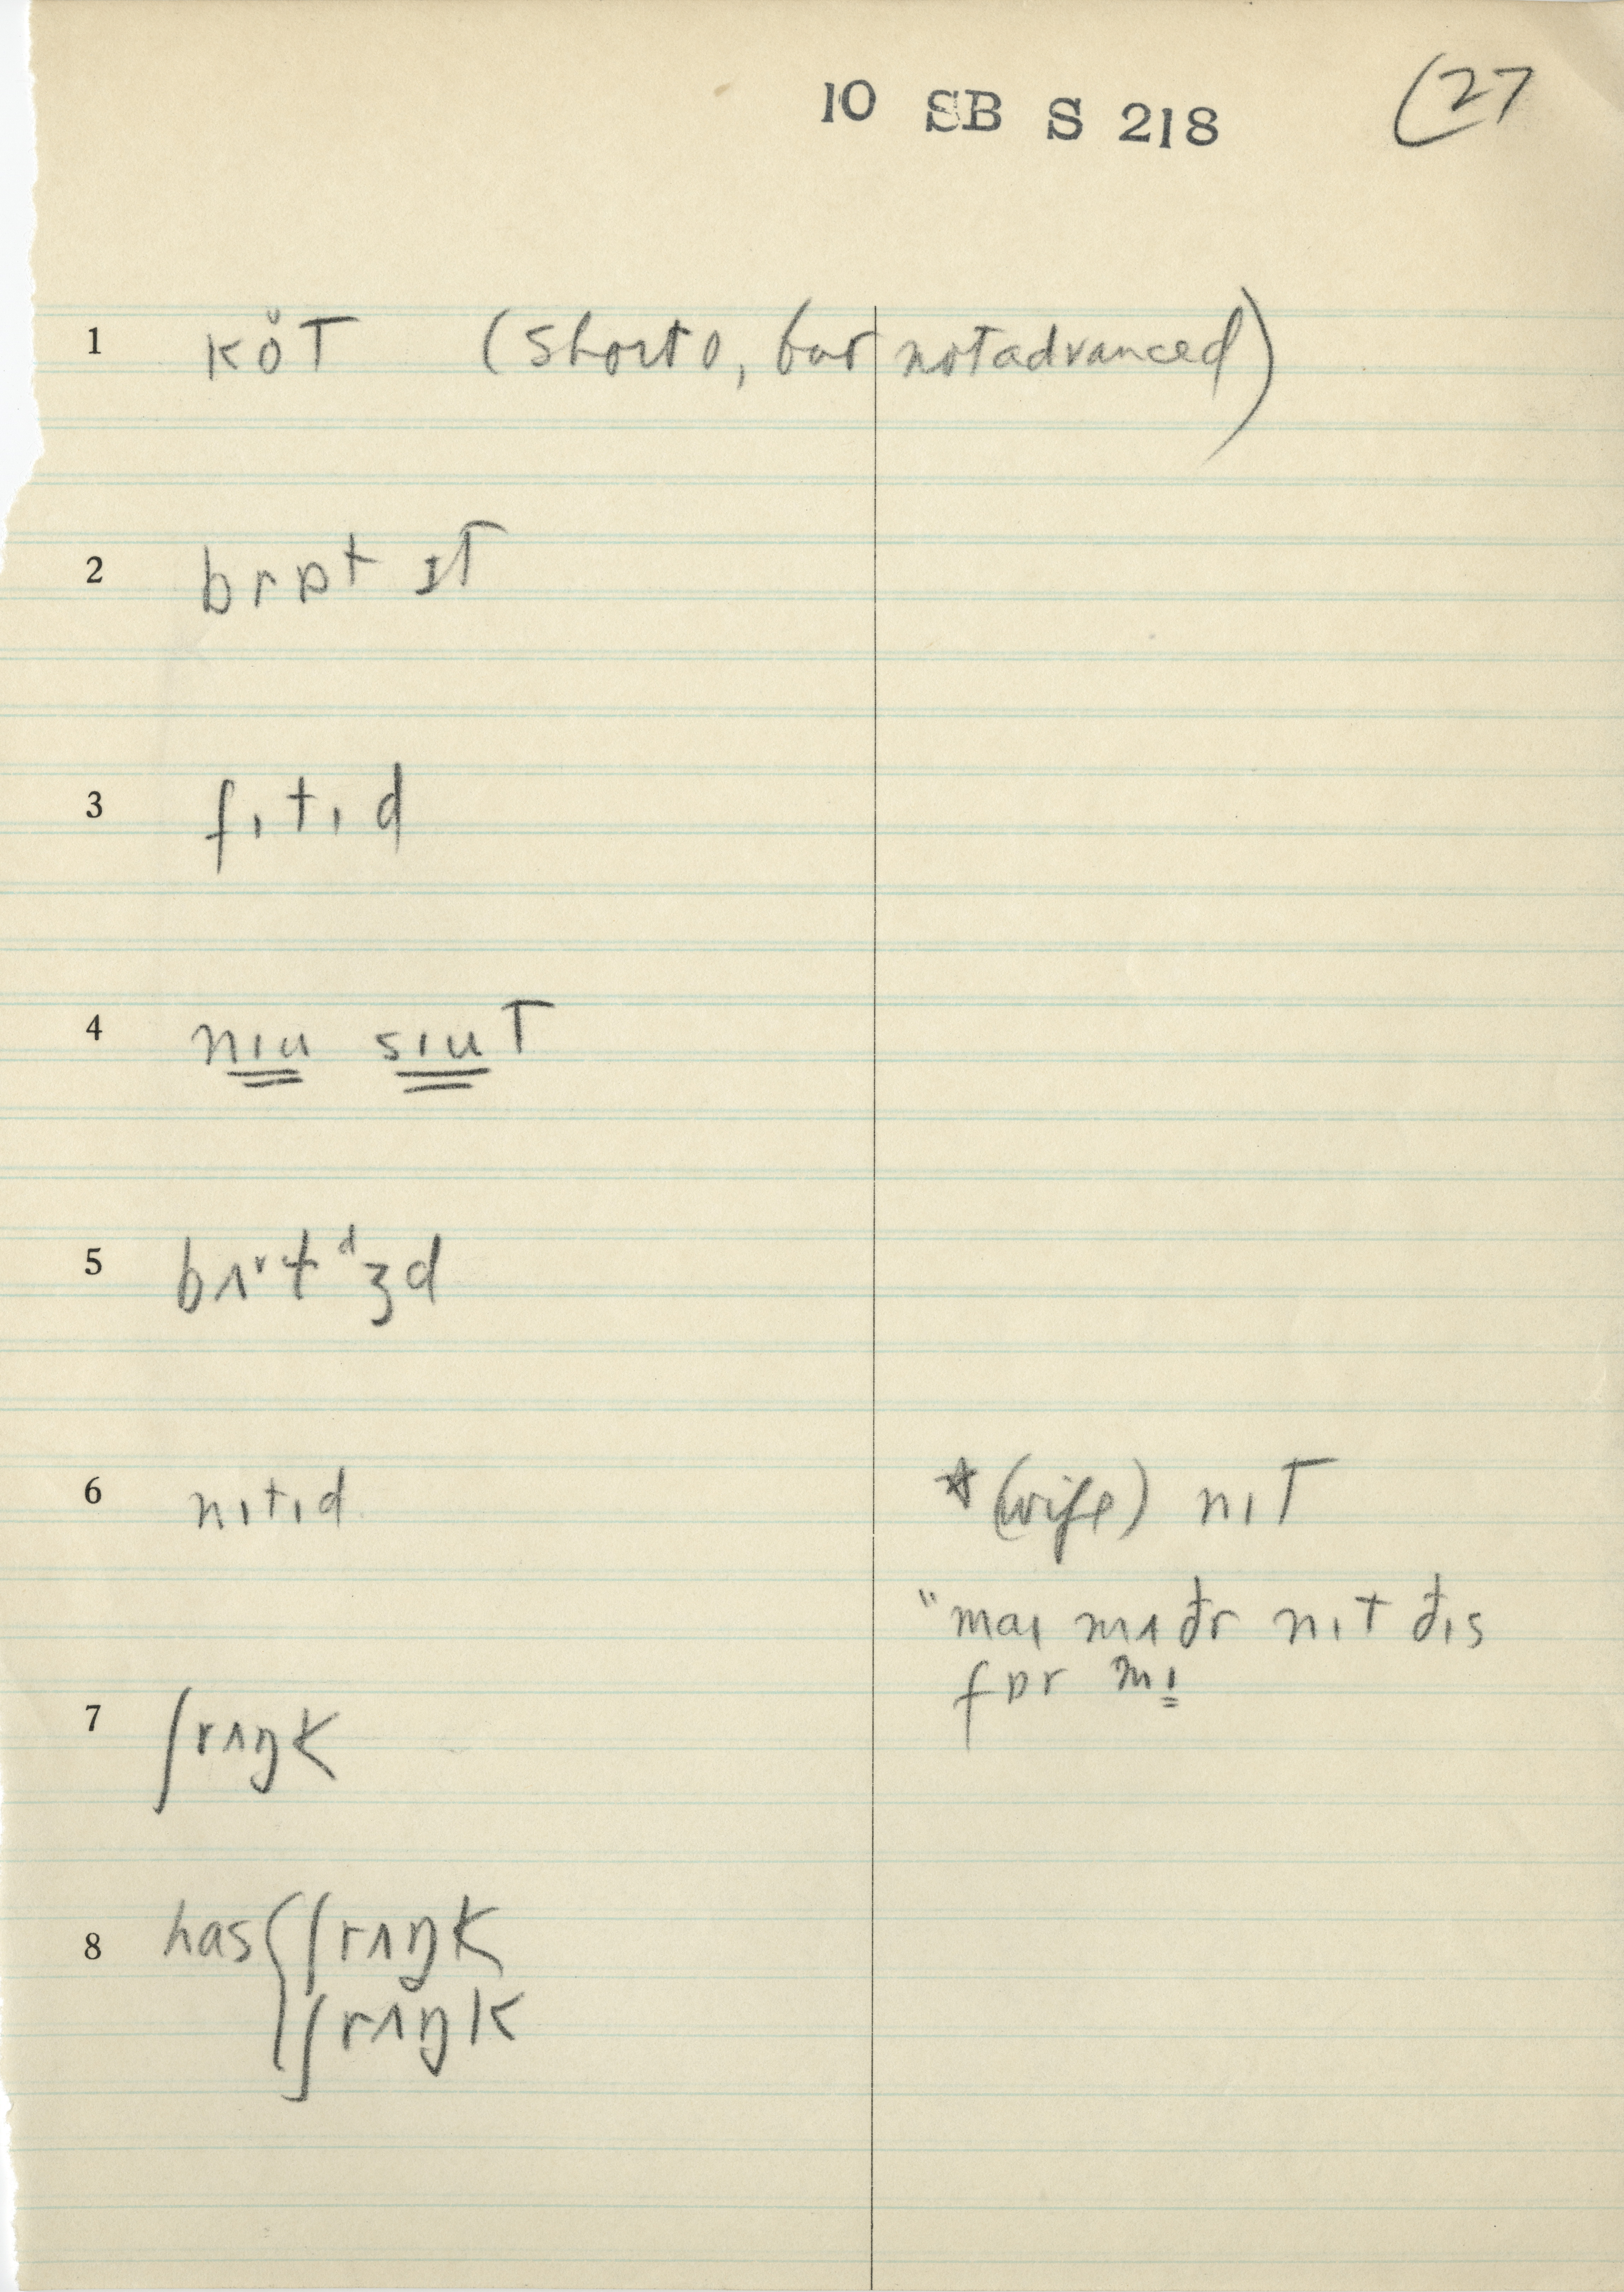 10 SB S 218 (27
1 kŏT (short o, but not advanced)
2 brɒt ɪT
3 fɪtɪd
4 nɪu sɪuT
5 bʌʳtᵈʒd
6 nɪtɪd *(wife) nɪT
"maɪ mʌđr nɪt đɪs
fɒr mɪ
7 ʃrʌŋk
8 has { ʃrʌŋk
ʃrʌŋk